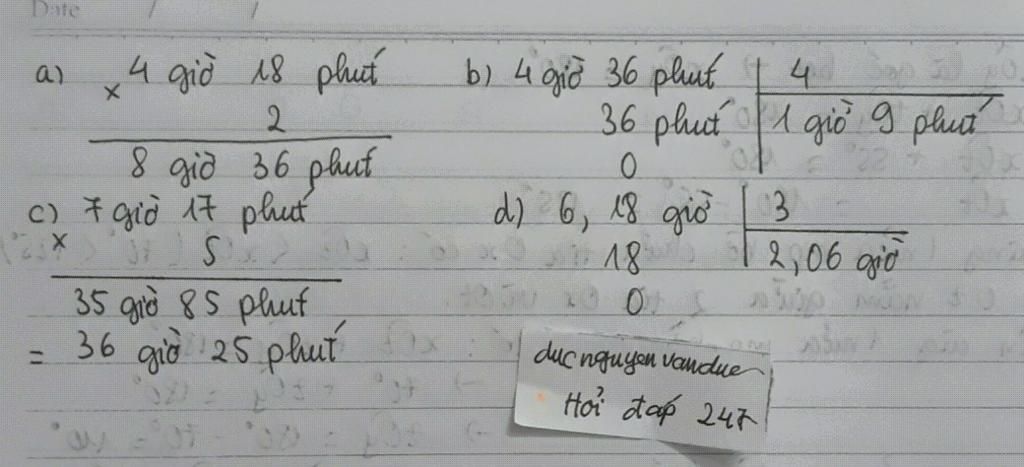 Date / /
a) × 4 giờ 18 phút
2
8 giờ 36 phút
b) 4 giờ 36 phút | 4
36 phút | 1 giờ 9 phút
0
c) 7 giờ 17 phút
× 5
35 giờ 85 phút
= 36 giờ 25 phút
d) 6, 18 giờ | 3
18 | 2,06 giờ
0
ducnguyenvanduc
Hỏi đáp 247